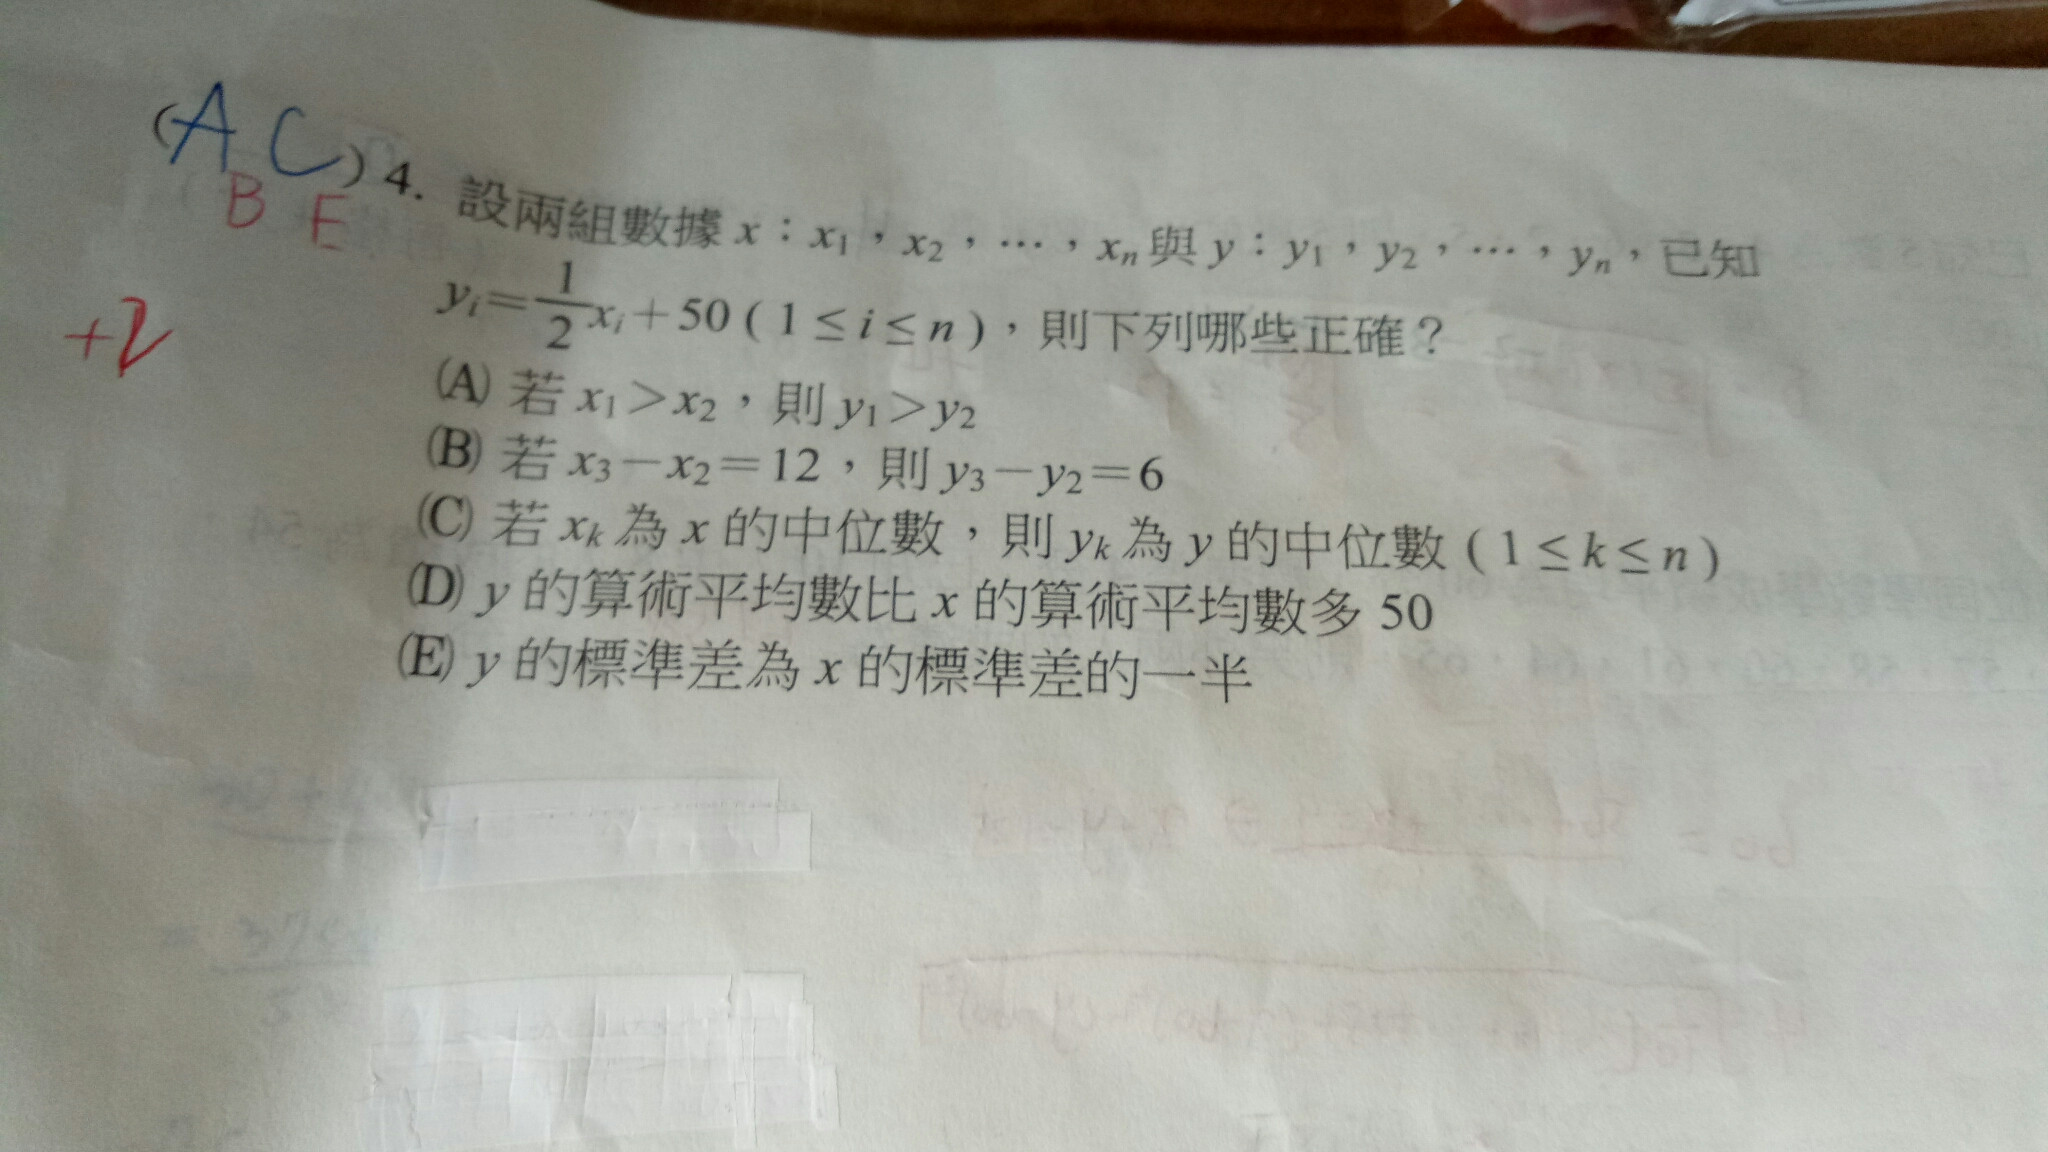 (A C) 4. 設兩組數據 x：x₁，x₂，⋯，xₙ與 y：y₁，y₂，⋯，yₙ，已知
B E
yᵢ=1/2xᵢ+50 ( 1≤i≤n )，則下列哪些正確？
+2
(A) 若 x₁>x₂，則 y₁>y₂
(B) 若 x₃−x₂=12，則 y₃−y₂=6
(C) 若 xₖ 為 x 的中位數，則 yₖ 為 y 的中位數 ( 1≤k≤n )
(D) y 的算術平均數比 x 的算術平均數多 50
(E) y 的標準差為 x 的標準差的一半